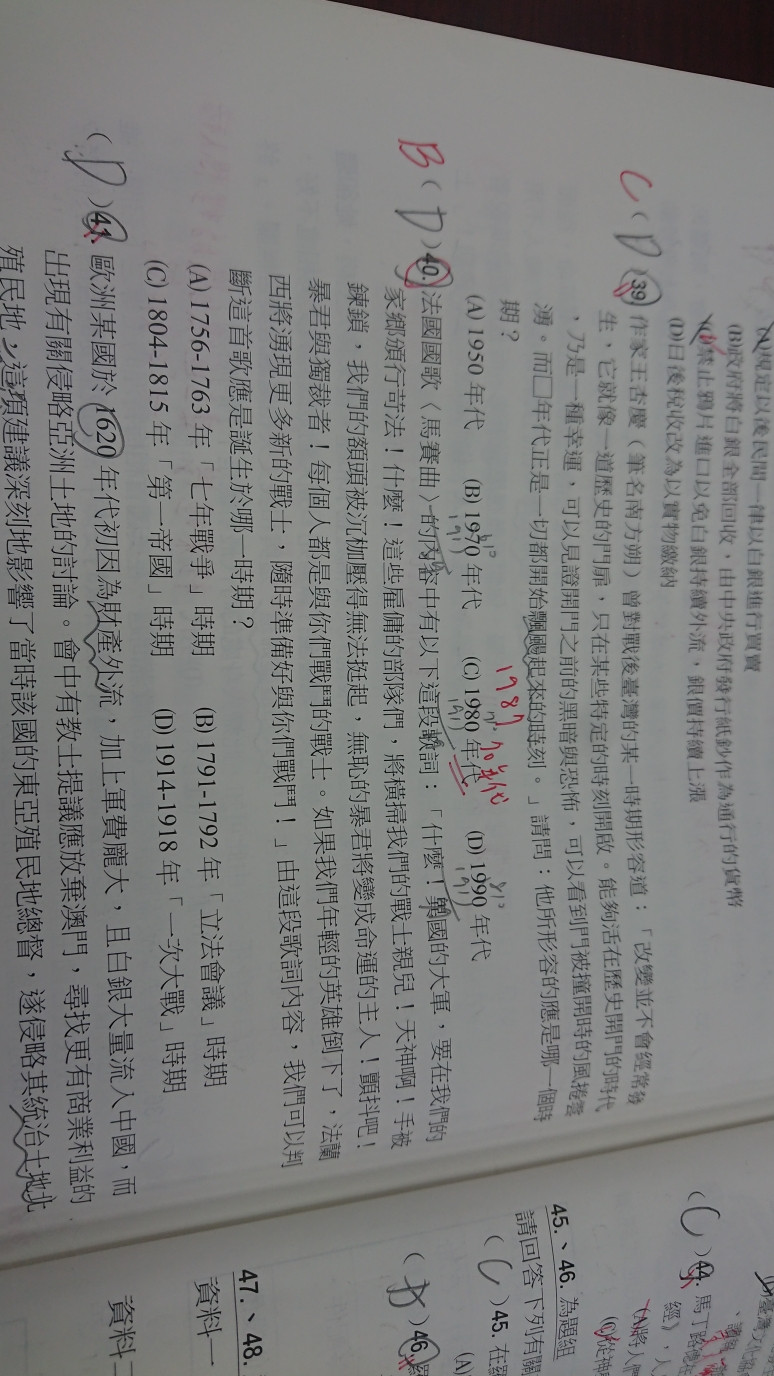 (A)規定以後民間一律以白銀進行買賣
(B)政府將白銀全部回收，由中央政府發行紙鈔作為通行的貨幣
(C)禁止鴉片進口以免白銀持續外流，銀價持續上漲
(D)日後稅收改為以實物繳納
C(D)39. 作家王杏慶（筆名南方朔）曾對戰後臺灣的某一時期形容道：「改變並不會經常發
生，它就像一道歷史的門扉，只在某些特定的時刻開啟。能夠活在歷史開門的時代
，乃是一種幸運，可以見證開門之前的黑暗與恐怖，可以看到門被撞開時的風捲雲
湧。而□年代正是一切都開始飄颺起來的時刻。」請問：他所形容的應是哪一個時
期？
1987
(A) 1950 年代 (B) 1970 年代 (C) 1980 年代 (D) 1990 年代
B(D)40. 法國國歌〈馬賽曲〉的內容中有以下這段歌詞：「什麼！異國的大軍，要在我們的
家鄉頒行苛法！什麼！這些雇傭的部隊們，將橫掃我們的戰士親兒！天神啊！手被
鍊鎖，我們的額頭被沉枷壓得無法挺起，無恥的暴君將變成命運的主人！顫抖吧！
暴君與獨裁者！每個人都是與你們戰鬥的戰士。如果我們年輕的英雄倒下了，法蘭
西將湧現更多新的戰士，隨時準備好與你們戰鬥！」由這段歌詞內容，我們可以判
斷這首歌應是誕生於哪一時期？
(A) 1756-1763 年「七年戰爭」時期 (B) 1791-1792 年「立法會議」時期
(C) 1804-1815 年「第一帝國」時期 (D) 1914-1918 年「一次大戰」時期
(D)41. 歐洲某國於 1620 年代初因為財產外流，加上軍費龐大，且白銀大量流入中國，而
出現有關侵略亞洲土地的討論。會中有教士提議應放棄澳門，尋找更有商業利益的
殖民地，這項建議深刻地影響了當時該國的東亞殖民地總督，遂侵略其統治土地北
(C)44. 馬丁路德
經》，人
(A)將人們
(C)從神
45.、46. 為題組
請回答下列有關
(C)45. 在
(A)
(D)46.
47.、48.
資料一
資料二